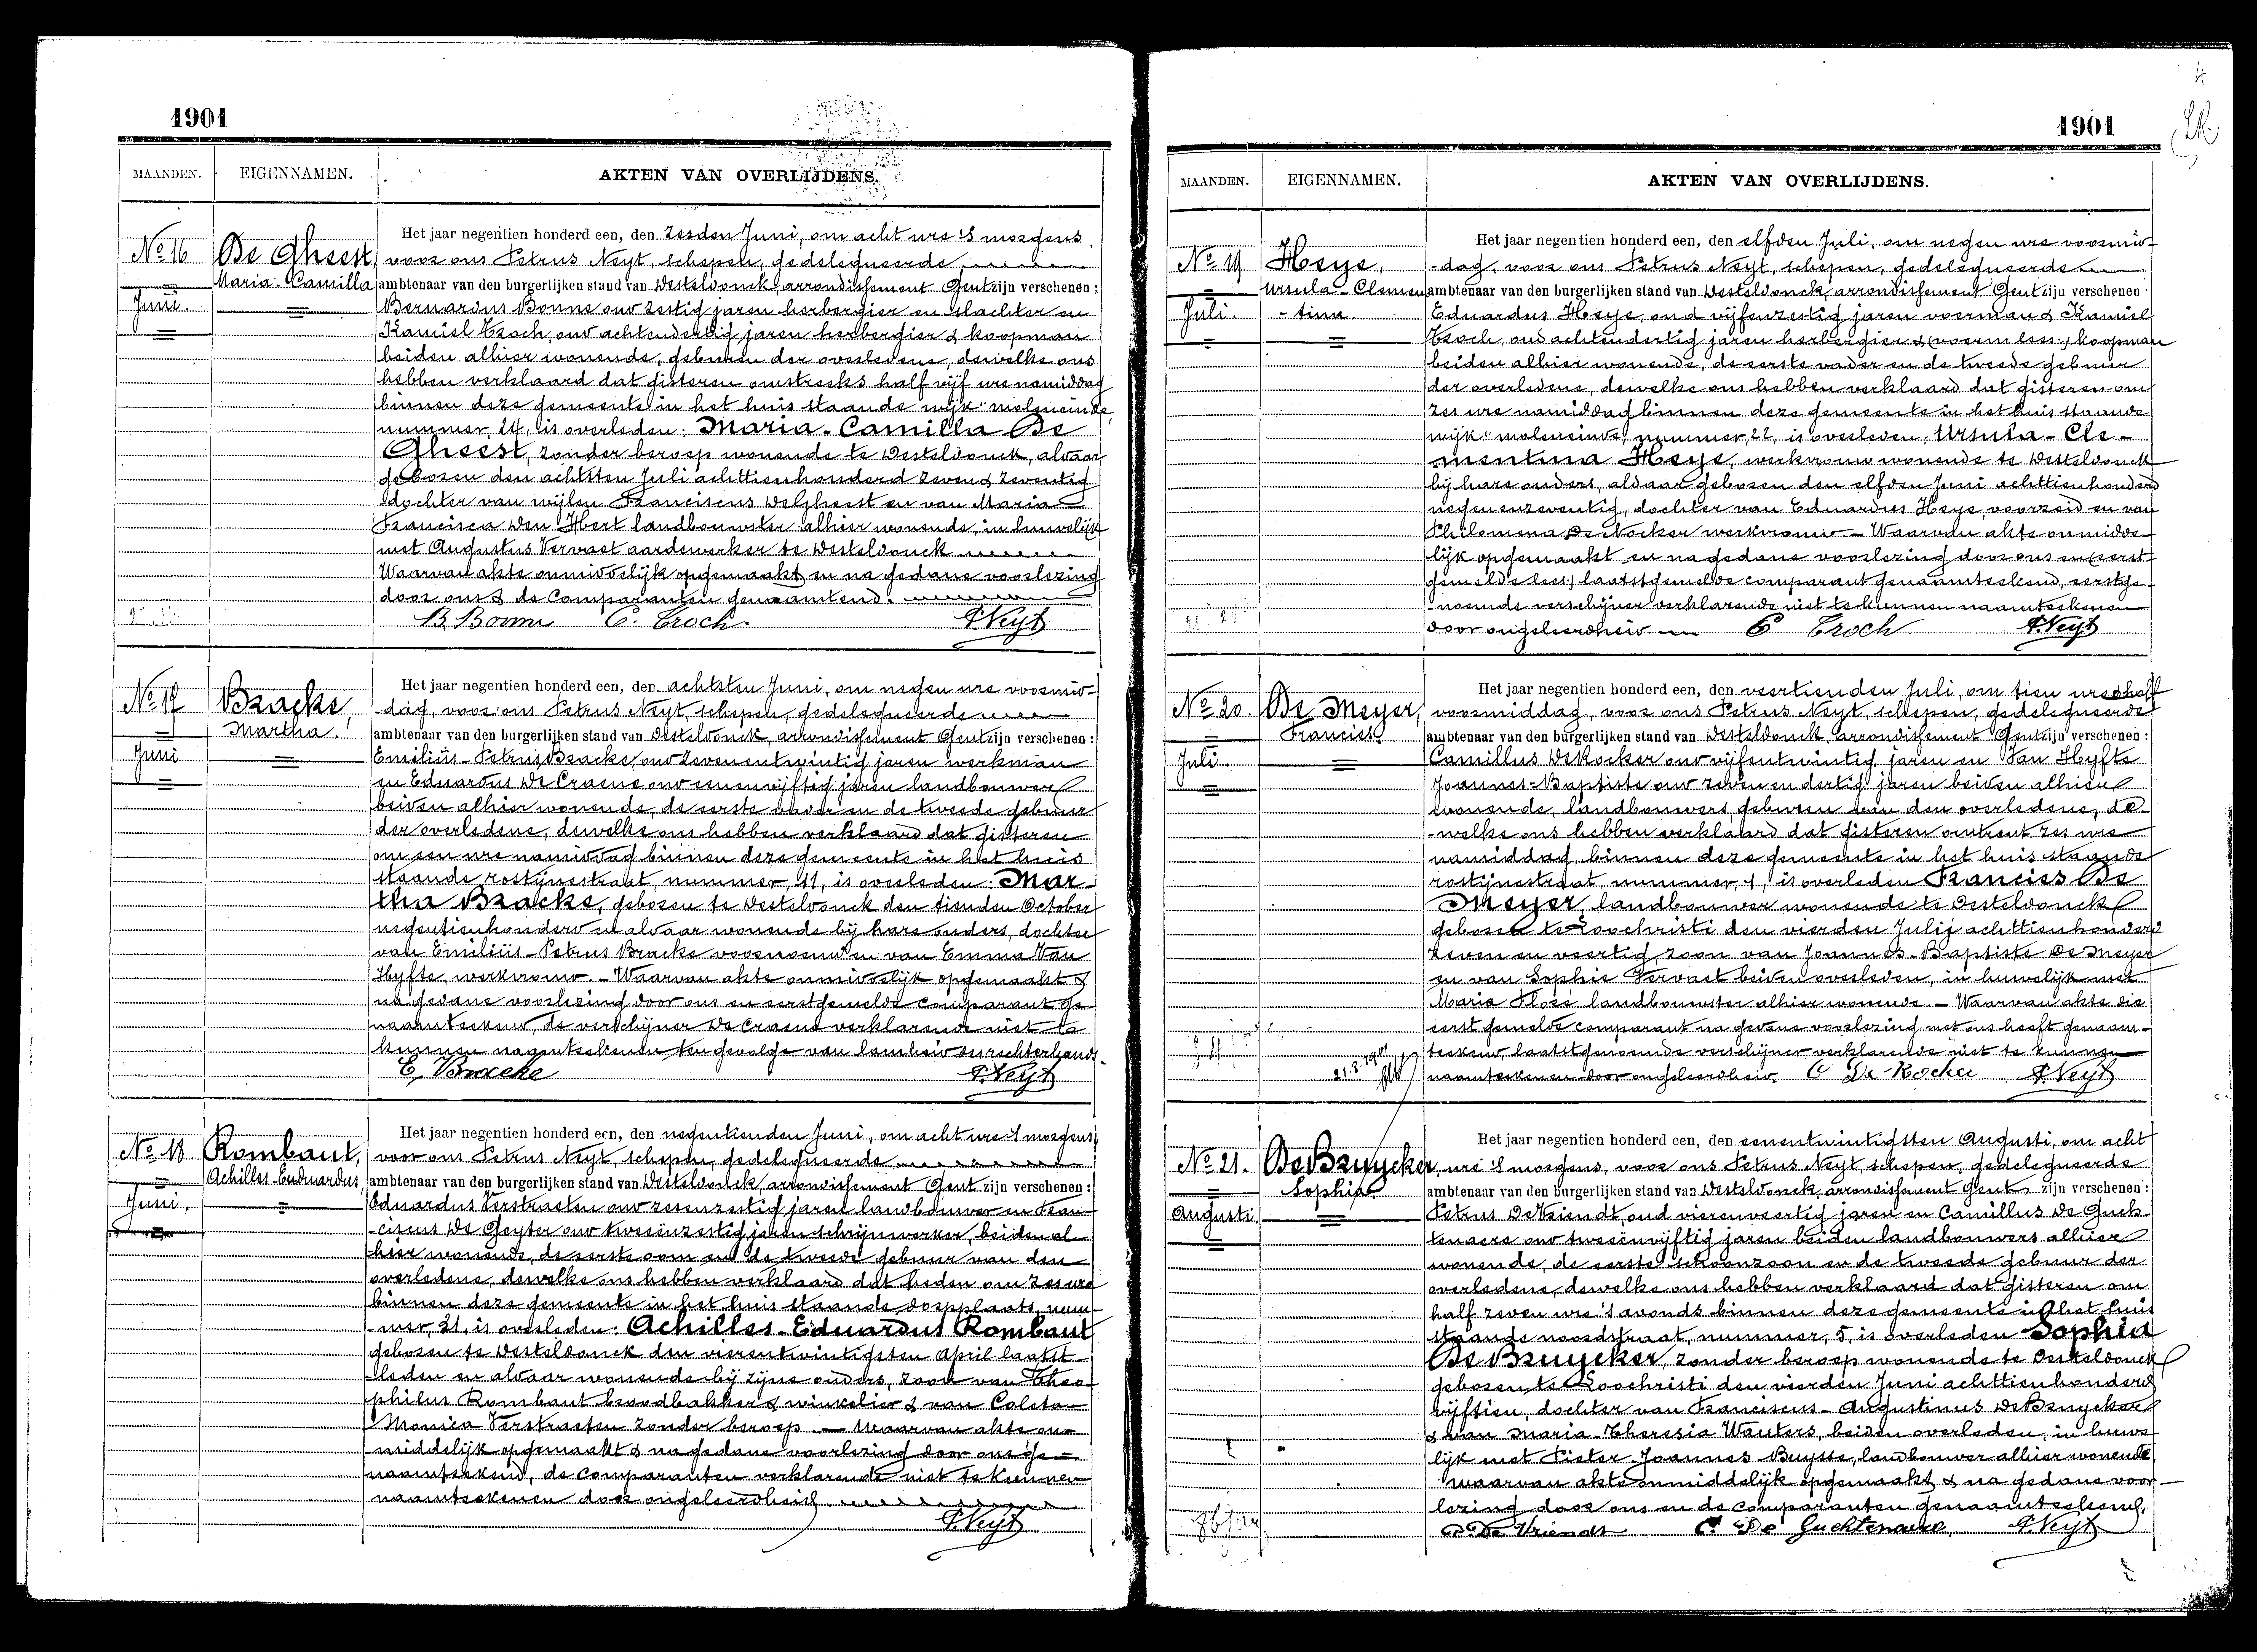 1901
MAANDEN.
EIGENNAMEN.
AKTEN VAN OVERLIJDENS.
No 16
Juni.
De Gheest,
Maria-Camilla
Het jaar negentien honderd een, den zesden Juni, om acht ure 's morgens
voor ons Petrus Neyt, schepen, gedelegueerde
ambtenaar van den burgerlijken stand van Desteldonck, arrondissement Gent zijn verschenen:
Bernardus Bonne oud zestig jaren herbergier en slachter en
Kamiel Croch, oud achtendertig jaren herbergier & koopman
beiden alhier wonende, geburen der overledene, dewelke ons
hebben verklaard dat gisteren omstreeks half vijf ure namiddag
binnen deze gemeente in het huis staande wijk: moleneinde,
nummer, 24, is overleden: Maria-Camilla De
Gheest, zonder beroep wonende te Desteldonck, aldaar
geboren den achtsten Juli achttienhonderd zeven & zeventig
dochter van wijlen Franciscus De Gheest en van Maria
Francisca Den Hert landbouwster alhier wonende, in huwelijk
met Augustus Vervaet aardewerker te Desteldonck
Waarvan akte onmiddelijk opgemaakt en na gedane voorlezing
door ons & de comparanten genaamtend.
B. Bonne C. Croch. P. Neyt
No 17
Juni
Bracke,
Martha.
Het jaar negentien honderd een, den achtsten Juni, om negen ure voormid-
dag, voor ons Petrus Neyt, schepen, gedelegueerde
ambtenaar van den burgerlijken stand van Desteldonck, arrondissement Gent zijn verschenen:
Emiliüs-Petrus Bracke oud zevenentwintig jaren werkman
en Eduardus De Craene oud eenenvijftig jaren landbouwer
beiden alhier wonende, de eerste vader en de tweede gebuur
der overledene, dewelke ons hebben verklaard dat gisteren
om een ure namiddag binnen deze gemeente in het huis
staande rostijnestraat, nummer, 11, is overleden: Mar-
tha Bracke, geboren te Desteldonck den tienden October
negentienhonderd en aldaar wonende bij hare ouders, dochter
van Emiliüs-Petrus Bracke voornoemd en van Emma Van
Hyfte, werkvrouw. - Waarvan akte onmiddelijk opgemaakt &
na gedane voorlezing door ons en eerstgemelde comparant ge-
naamteekend, de verschijner De Craene verklarende niet te
kunnen naamteekenen ten gevolge van lamheid der rechterhand.
E. Bracke P. Neyt
No 18
Juni.
Rombaut,
Achilles-Eduardus,
Het jaar negentien honderd een, den negentienden Juni, om acht ure 's morgens,
voor ons Petrus Neyt, schepen, gedelegueerde
ambtenaar van den burgerlijken stand van Desteldonck, arrondissement Gent zijn verschenen:
Eduardus Verstraeten oud zesenzestig jaren landbouwer en Fran-
ciscus De Geyter oud tweeënzestig jaren schrijnwerker, beiden al-
hier wonende, de eerste oom en de tweede gebuur van den
overledene, dewelke ons hebben verklaard dat heden om zes ure
binnen deze gemeente in het huis staande dorpplaats, num-
mer, 31, is overleden: Achilles-Eduardus Rombaut
geboren te Desteldonck den vierentwintigsten April laatst-
leden en aldaar wonende bij zijne ouders, zoon van Theo-
philus Rombaut broodbakker & winkelier & van Coleta-
Monica Verstraeten zonder beroep. - Waarvan akte on-
middelijk opgemaakt & na gedane voorlezing door ons ge-
naamteekend, de comparanten verklarende niet te kunnen
naamteekenen door ongeleerdheid.
P. Neyt
4
1901
MAANDEN.
EIGENNAMEN.
AKTEN VAN OVERLIJDENS.
No 19
Juli.
Heye,
Ursula-Clemen
-tina.
Het jaar negentien honderd een, den elfden Juli, om negen ure voormid-
-dag, voor ons Petrus Neyt, schepen, gedelegueerde
ambtenaar van den burgerlijken stand van Desteldonck, arrondissement Gent zijn verschenen:
Eduardus Heye, oud vijfenzestig jaren voerman & Kamiel
Croch, oud achtendertig jaren herbergier & (voerm lees:) koopman
beiden alhier wonende, de eerste vader en de tweede gebuur
der overledene, dewelke ons hebben verklaard dat gisteren om
zes ure namiddag binnen deze gemeente in het huis staande
wijk: moleneinde, nummer, 22, is overleden: Ursula-Cle-
mentina Heye, werkvrouw wonende te Desteldonck
bij hare ouders, aldaar geboren den elfden Juni achttienhonderd
negenenzeventig, dochter van Eduardus Heye, voorzeid en van
Philomena De Kocker werkvrouw - Waarvan akte onmidde-
lijk opgemaakt en na gedane voorlezing door ons en (eerst-
gemelde lees:) laatstgemelde comparant genaamteekend, eerstge-
noemde verschijner verklarende niet te kunnen naamteekenen
door ongeleerdheid. C Croch P. Neyt
No 20.
Juli.
De Meyer,
Francies
Het jaar negentien honderd een, den veertienden Juli, om tien ure & half
voormiddag, voor ons Petrus Neyt, schepen, gedelegueerde
ambtenaar van den burgerlijken stand van Desteldonck, arrondissement Gent zijn verschenen:
Camillus De Kocker oud vijfentwintig jaren en Van Hyfte
Joannes-Baptiste oud zeven en dertig jaren beiden alhier
wonende, landbouwers, geburen van den overledene, de-
-welke ons hebben verklaard dat gisteren omtrent zes ure
namiddag, binnen deze gemeente in het huis staande
rostijnestraat, nummer, 1, is overleden Francies De
Meyer, landbouwer wonende te Desteldonck
geboren te Loochristi den vierden Julij achttienhonderd
zeven en veertig, zoon van Joannes-Baptiste De Meyer
en van Sophie Vervaet beiden overleden, in huwelijk met
Maria Floré landbouwster alhier wonende. - Waarvan akte die
eerst gemelde comparant na gedane voorlezing met ons heeft genaam-
teekend, laatstgenoemde verschijner verklarende niet te kunnen
naamteekenen door ongeleerdheid. C De Kocker P. Neyt
No 21.
Augusti.
De Bruycker,
Sophia
Het jaar negentien honderd een, den eenentwintigsten Augusti, om acht
ure 's morgens, voor ons Petrus Neyt, schepen, gedelegueerde
ambtenaar van den burgerlijken stand van Desteldonck, arrondissement Gent zijn verschenen:
Petrus De Vriendt, oud vierenveertig jaren en Camillus De Guch-
tenaere oud tweeënvijftig jaren beiden landbouwers alhier
wonende, de eerste schoonzoon en de tweede gebuur der
overledene, dewelke ons hebben verklaard dat gisteren om
half zeven ure 's avonds binnen deze gemeente in het huis
staande noordstraat, nummer, 5, is overleden Sophia
De Bruycker, zonder beroep wonende te Desteldonck
geboren te Loochristi den vierden Juni achttienhonderd
vijftien, dochter van Franciscus-Augustinus De Bruycker
& van Maria-Theresia Wauters, beiden overleden, in huwe-
lijk met Pieter-Joannes Buysse, landbouwer alhier wonende
waarvan akte onmiddelijk opgemaakt & na gedane voor-
lezing door ons en de comparanten genaamteekend.
P. De Vriendt C. De Guchtenaere P. Neyt